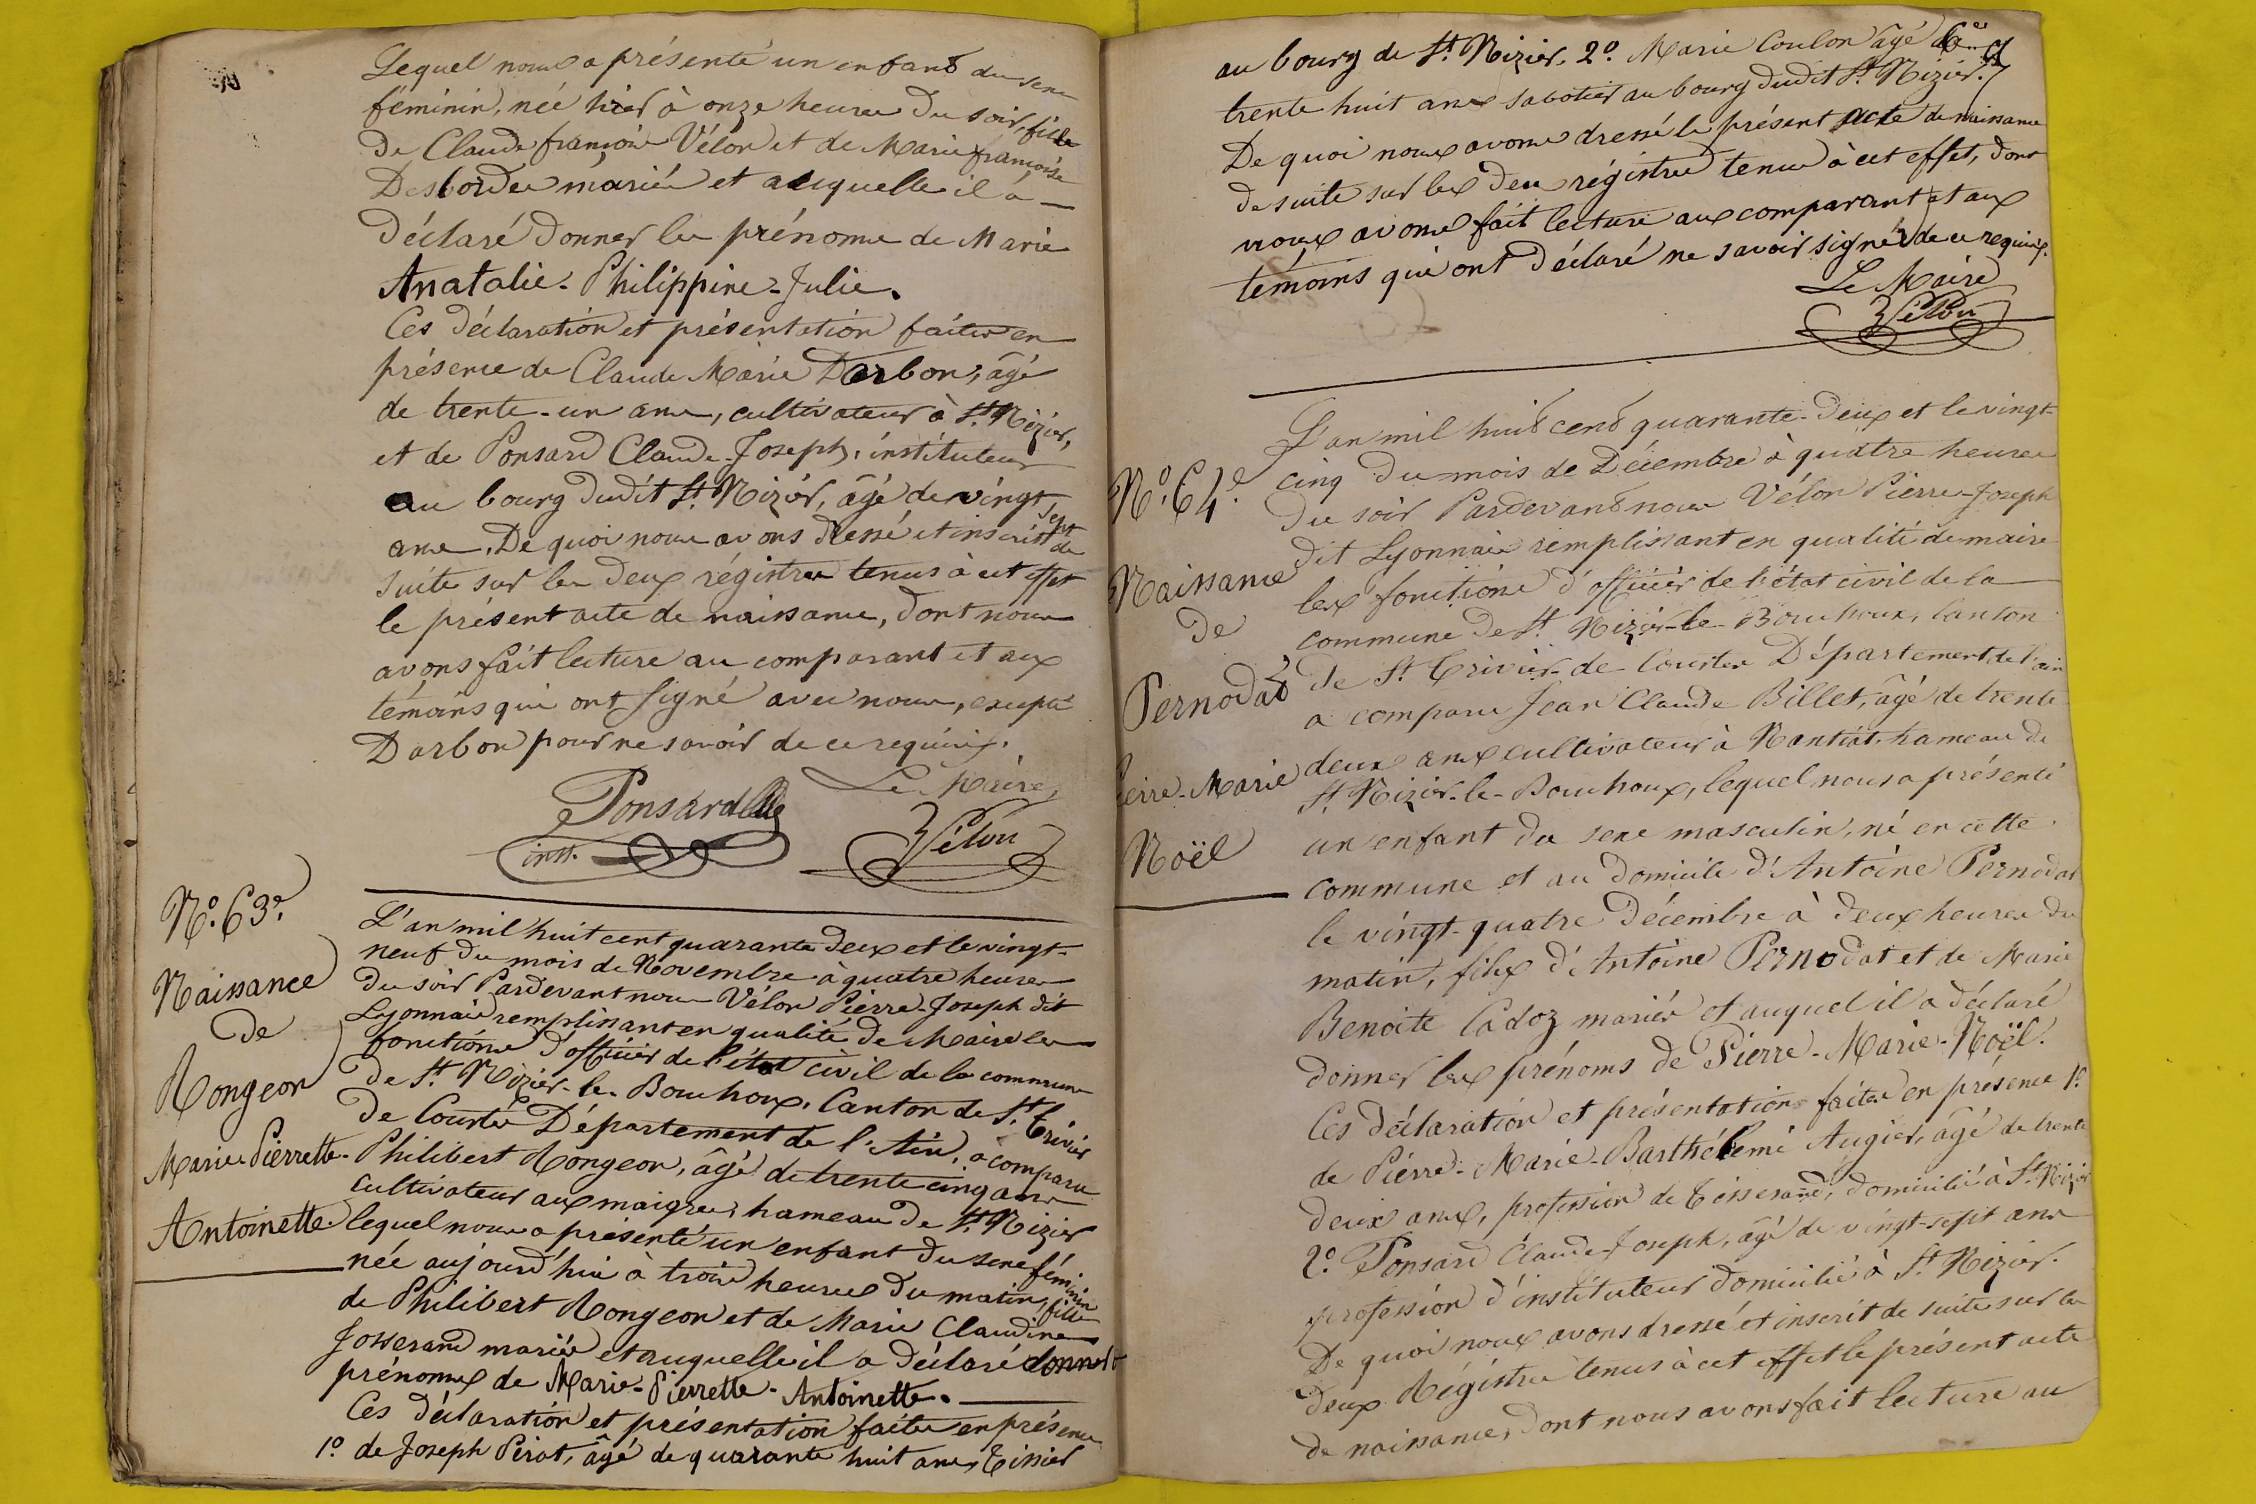 Lequel nous a présenté un enfant du sexe
féminin, née hier à onze heures du soir, fille
de Claude françois Vélon et de Marie françoise
Desbordes mariés et auquelle il a
déclaré donner les prénoms de Marie
Anatalie-Philippine-Julie.
Ces déclaration et présentation faites en
présence de Claude Marie Darbon, âgé
de trente-un ans, cultivateur à St. Nizier,
et de Ponsard Claude-Joseph, instituteur
au bourg dudit St. Nizier, âgé de vingt sept
ans. De quoi nous avons dressé et inscrit de
suite sur les deux régistres tenus à cet effet
le présent acte de naissance, dont nous
avons fait lecture au comparant et aux
témoins qui ont signé avec nous, excepté
Darbon pour ne savoir de ce requis.
Le Maire,
Ponsard
inst.
Vélon
No. 63e.
Naissance
de
Rongeon
Marie Pierrette-
Antoinette
L'an mil huit cent quarante deux et le vingt-
neuf du mois de Novembre à quatre heures
du soir Pardevant nous Vélon Pierre-Joseph dit
Lyonnais remplissant en qualité de Maire les
fonctions d'officier de l'état civil de la commune
de St. Nizier-le-Bouchoux, Canton de St. Trivier
de Courtes Département de l'Ain, a comparu
Philibert Rongeon, âgé de trente cinq ans
cultivateur aux maigres, hameau de St. Nizier
lequel nous a présenté un enfant du sexe féminin
née aujourd'hui à trois heures du matin, fille
de Philibert Rongeon et de Marie Claudine
Josserand mariés et auquelle il a déclaré donner
prénoms de Marie-Pierrette-Antoinette.
Ces déclaration et présentation faites en présence
1o. de Joseph Pirat, âgé de quarante huit ans, Tissier
au bourg de St. Nizier. 2o. Marie Coulon âgé de
trente huit ans sabotier au bourg dudit St. Nizier.
De quoi nous avons dressé le présent acte de naissance
de suite sur les deux régistres tenus à cet effet, dont
nous avons fait lecture aux comparant et aux
témoins qui ont déclaré ne savoir signé de ce requis.
Le Maire
Vélon
No. 64e.
Naissance
de
Pernodat
Pierre-Marie
Noël
L'an mil huit cent quarante-deux et le vingt-
cinq du mois de Décembre à quatre heures
du soir Pardevant nous Vélon Pierre-Joseph
dit Lyonnais remplissant en qualité de maire
les fonctions d'officier de l'état civil de la
commune de St. Nizier-le-Bouchoux, Canton
de St. Trivier-de-Courtes Département de l'ain
a comparu Jean Claude Billet, âgé de trente
deux ans cultivateur à Nantiat, hameau de
St. Nizier-le-Bouchoux, lequel nous a présenté
un enfant du sexe masculin, né en cette
commune et au domicile d'Antoine Pernodat
le vingt-quatre Décembre à deux heures du
matin, fils d'Antoine Pernodat et de Marie
Benoite Cadoz mariés et auquel il a déclaré
donner les prénoms de Pierre-Marie-Noël.
Ces déclaration et présentation faites en présence 1o.
de Pierre-Marie-Barthélemi Augier, âgé de trente
deux ans, profession de Tisserand, domicilié à St. Nizier
2o. Ponsard Claude-Joseph, âgé de vingt-sept ans
profession d'instituteur domicilié à St. Nizier.
De quoi nous avons dressé et inscrit de suite sur les
deux Régistres tenus à cet effet le présent acte
de naissance, dont nous avons fait lecture au